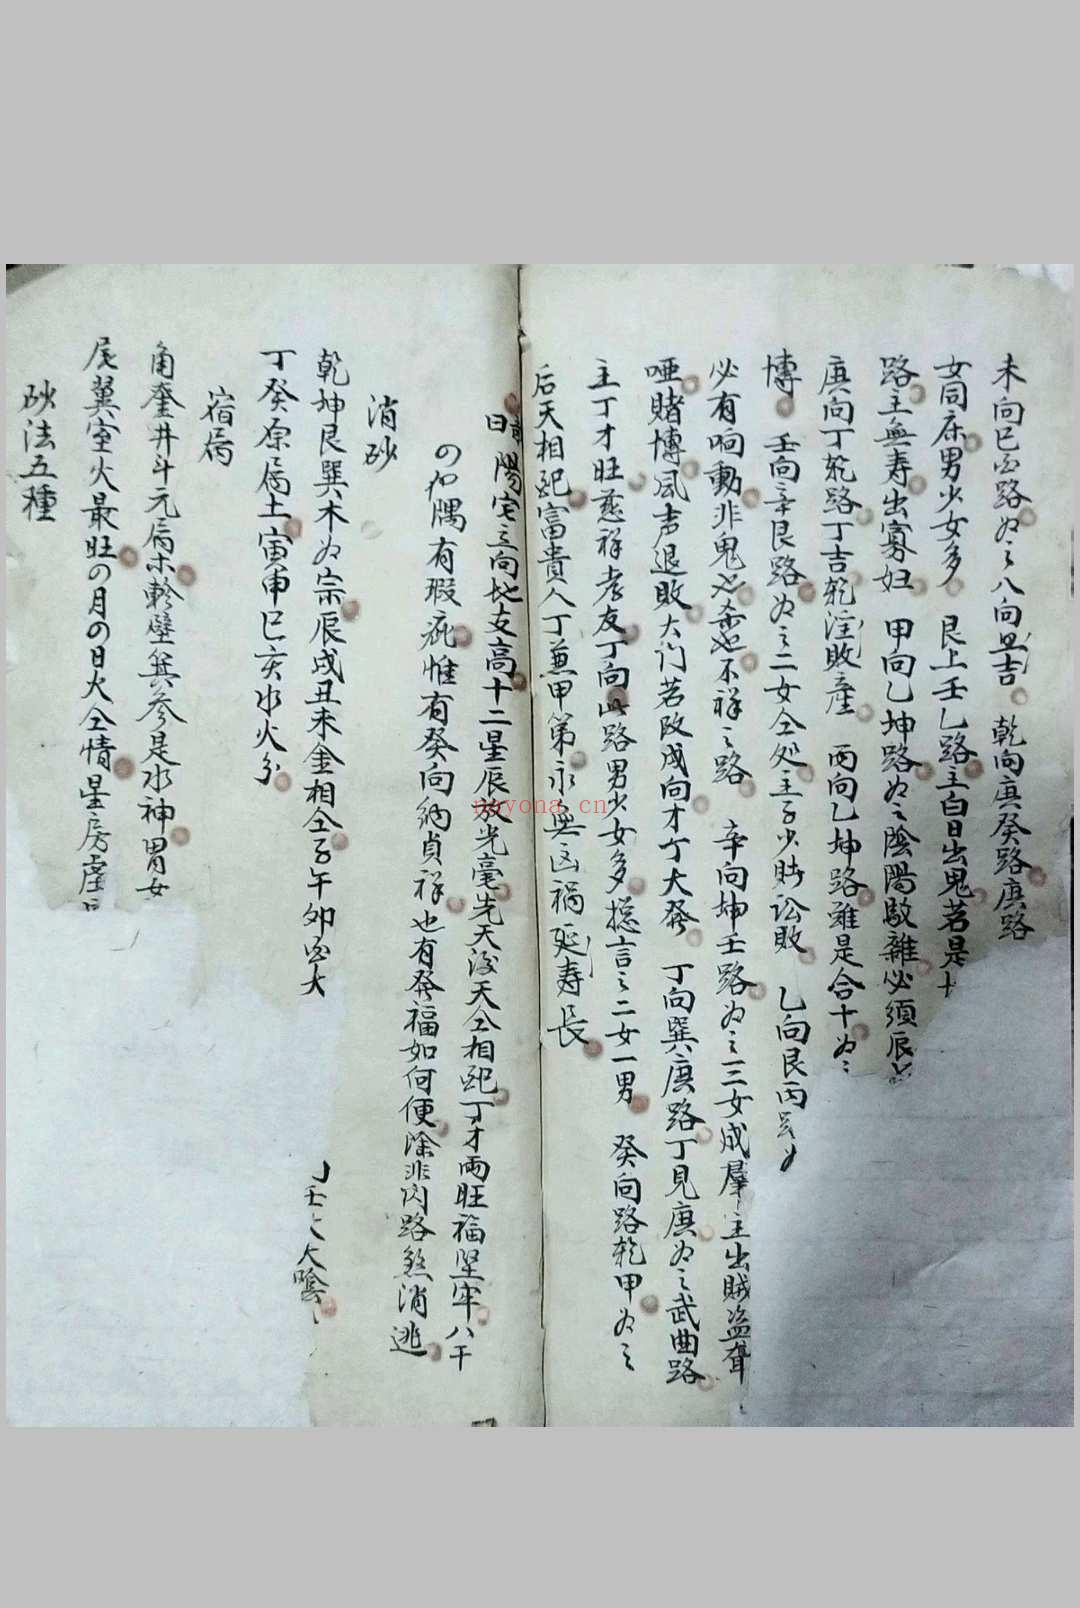 未向巳酉路为之八向異吉　乾向庚癸路庚路
女同床男少女多　艮上壬乙路主白日出鬼若是十
路主無寿出寡妇　甲向乙坤路为之陰陽駁雜必須辰
庚向丁乾路丁吉乾注敗產　丙向乙坤路雖是合十为之
博　壬向辛艮路为之二女仝処主子少時訟敗　乙向艮丙
必有响動非鬼也杀也不祥之路　辛向坤壬路为之三女成羣主出賊盗聋
啞賭博風声退敗大门若改成向才丁大發　丁向巽庚路丁見庚为之武曲路
主丁才旺慈祥孝友丁向此路男少女多揔言之二女一男　癸向路乾甲为之
后天相配富貴人丁兼甲第永無凶禍延寿長
日 陽宅立向地支高十二星辰放光毫先天後天仝相配丁才兩旺福坚牢八干
の加隅有瑕疵惟有癸向納貞祥也有發福如何便除非内路煞消逃
消砂
乾坤艮巽木为宗辰戌丑未金相仝子午卯酉大
壬大大陰之
丁癸原属土寅申巳亥水火分
宿局
角奎井斗元属木軫壁箕参是水神胃女
尾翼室火最旺の月の日火仝情星房虚
砂法五種
nayona.cn